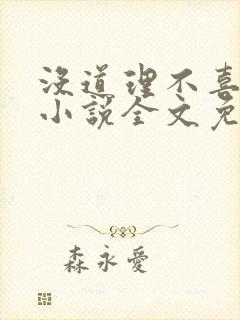 没道理不喜
小說全文免
森永愛